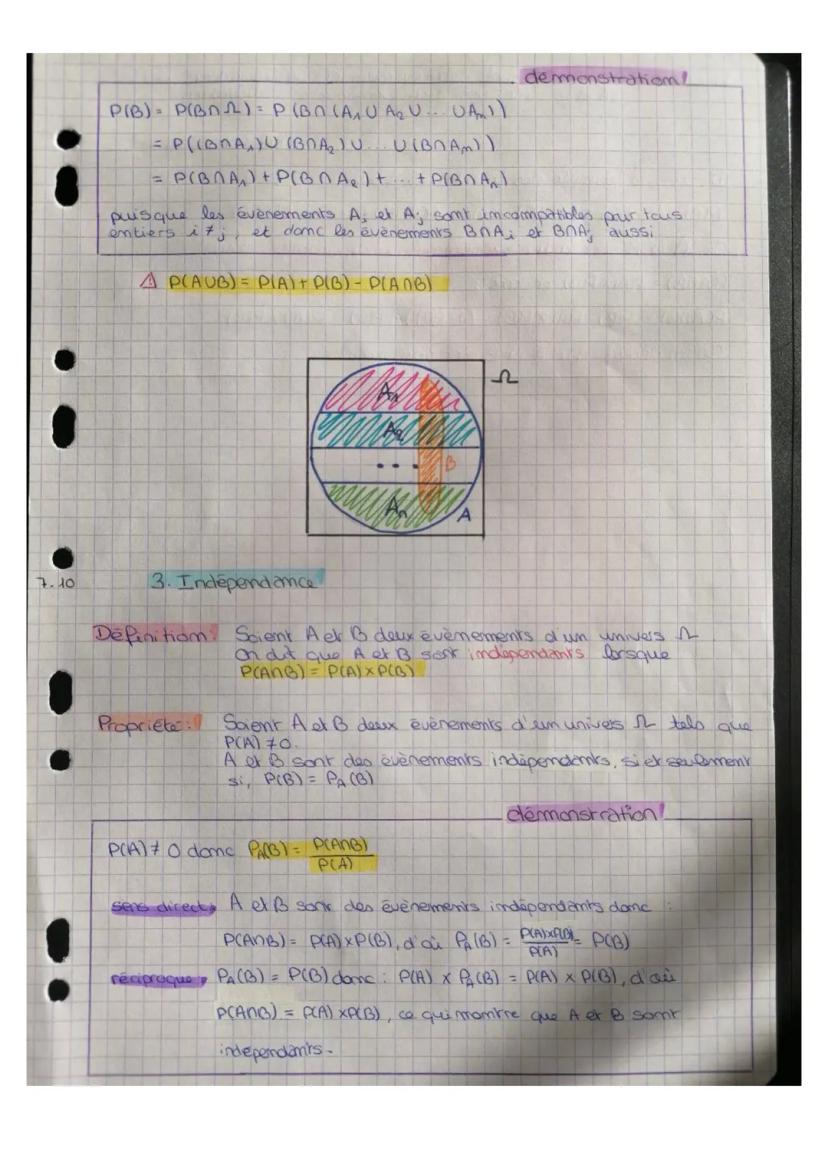 démonstration!
P(B) = P(B∩Ω) = P(B∩(A₁∪A₂∪...∪Aₙ))
= P((B∩A₁)∪(B∩A₂)∪...∪(B∩Aₙ))
= P(B∩A₁)+P(B∩A₂)+...+P(B∩Aₙ)
puisque les évènements Aᵢ et Aⱼ sont incompatibles pur tous
entiers i≠j, et donc les évènements B∩Aᵢ et B∩Aⱼ aussi
⚠ P(A∪B) = P(A)+P(B)-P(A∩B)
Ω
A₁
A₂
... B
Aₙ
A
7.10 3. Indépendance
Définition: Soient A et B deux évènements d'un univers Ω
On dit que A et B sont indépendants lorsque
P(A∩B) = P(A)×P(B)
Propriété: Soient A et B deux évènements d'un univers Ω tels que
P(A)≠0.
A et B sont des évènements indépendants, si et seulement
si, P(B) = P_A(B)
démonstration!
P(A)≠0 donc P_A(B) = P(A∩B)/P(A)
sens direct, A et B sont des évènements indépendants donc :
P(A∩B) = P(A)×P(B), d'où P_A(B) = P(A)×P(B)/P(A) = P(B)
réciproque, P_A(B) = P(B) donc : P(A) × P_A(B) = P(A) × P(B), d'où
P(A∩B) = P(A)×P(B), ce qui montre que A et B sont
indépendants.